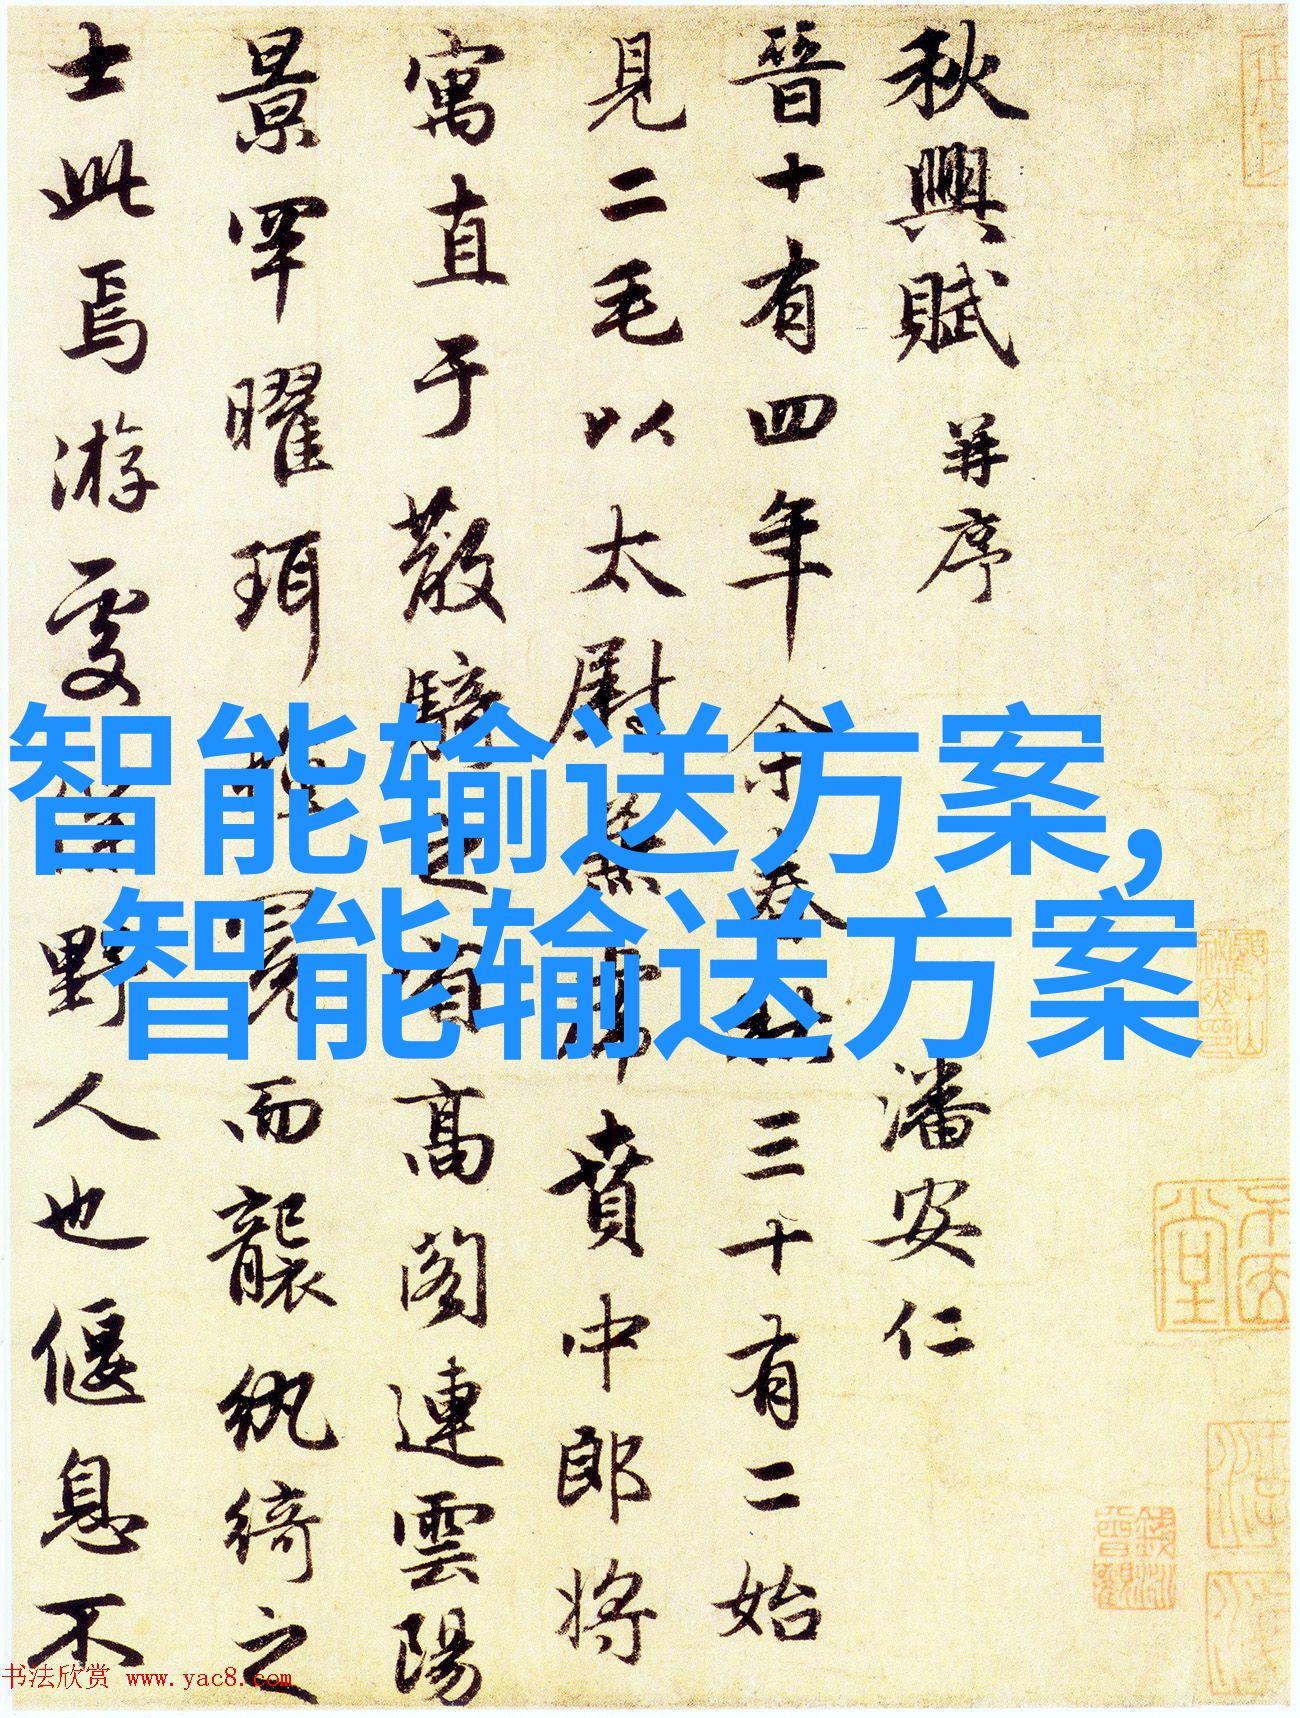 秋興賦 并序 潘安仁
晉十有四年余春秋三十有二始
見二毛以太尉 賁中郎将
寓直于散騎之省高閣連雲陽
景罕曜珥 冕而襲紈綺之
士此焉游處 野人也偃息不
智能输送方案,
智能输送方案
书法欣赏 www.yac8.com